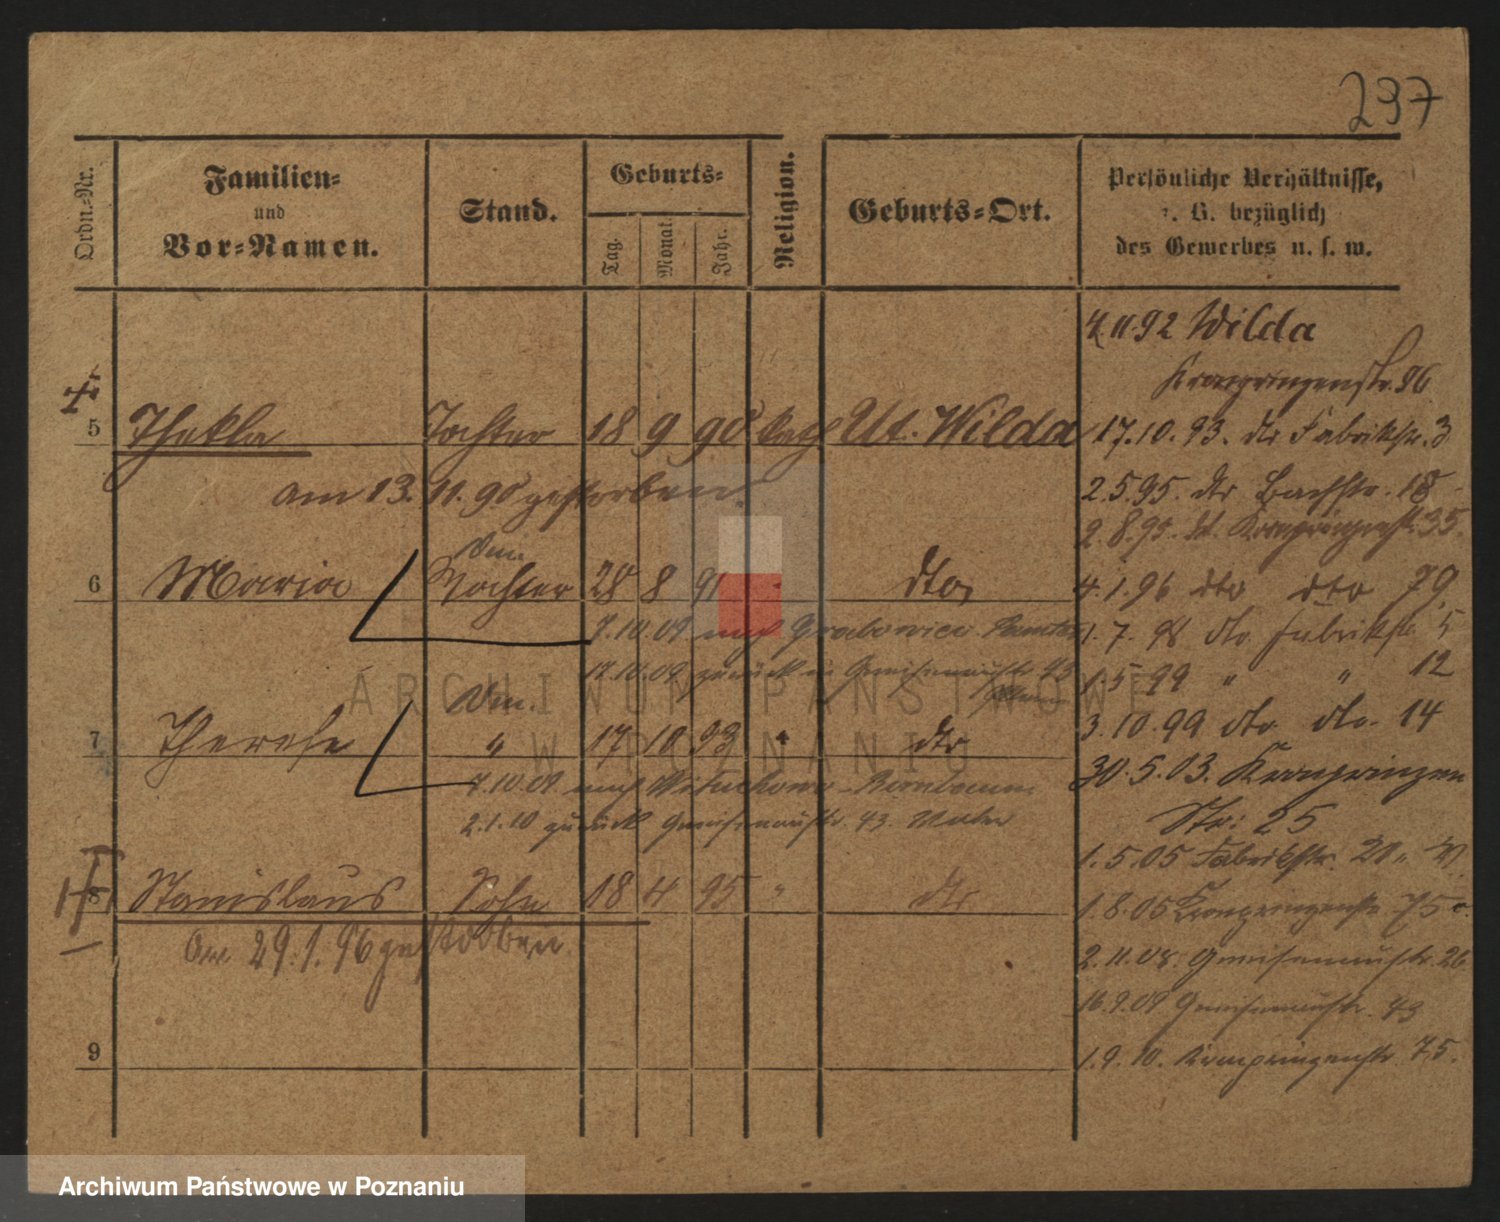 237
Ordn.-Nr.
Familien-
und
Vor-Namen.
Stand.
Geburts-
Tag.
Monat.
Jahr.
Religion.
Geburts-Ort.
Persönliche Verhältnisse,
z. B. bezüglich
des Gewerbes u. s. w.
4.11.92 Wilda
Kronprinzenstr. 96
5 Thekla Tochter 18 9 90 kath Ut. Wilda
17.10.93. dto Fabrikstr. 3
am 13. 11. 90 gestorben.
2.5.95. dto Bachstr. 18
2.8.95. Kronprinzenstr. 35.
6 Maria Tochter 28 8 91 " dto
4.1.96 dto dto 79.
7.10.09 nach Grabowiec
1.7.98 dto Fabrikstr. 5
12.10.09 zurück in Gneisenaustr. 43
1.5.99 " " 12
3.10.99 dto dto. 14
7 Therese " 17 10 93 " dto
30.5.03. Kronprinzen
7.10.09 nach
Str: 25
2.1.10 zurück Gneisenaustr. 43.
1.5.05 Fabrikstr. 20
8 Stanislaus Sohn 18 4 95 " dto
1.8.05 Kronprinzenstr. 75
Am 29.1.96 gestorben.
2.11.08. Gneisenaustr. 26
16.9.09 Gneisenaustr. 43
9
1.9.10. Kronprinzenstr. 75.
ARCHIWUM PAŃSTWOWE
W POZNANIU
Archiwum Państwowe w Poznaniu